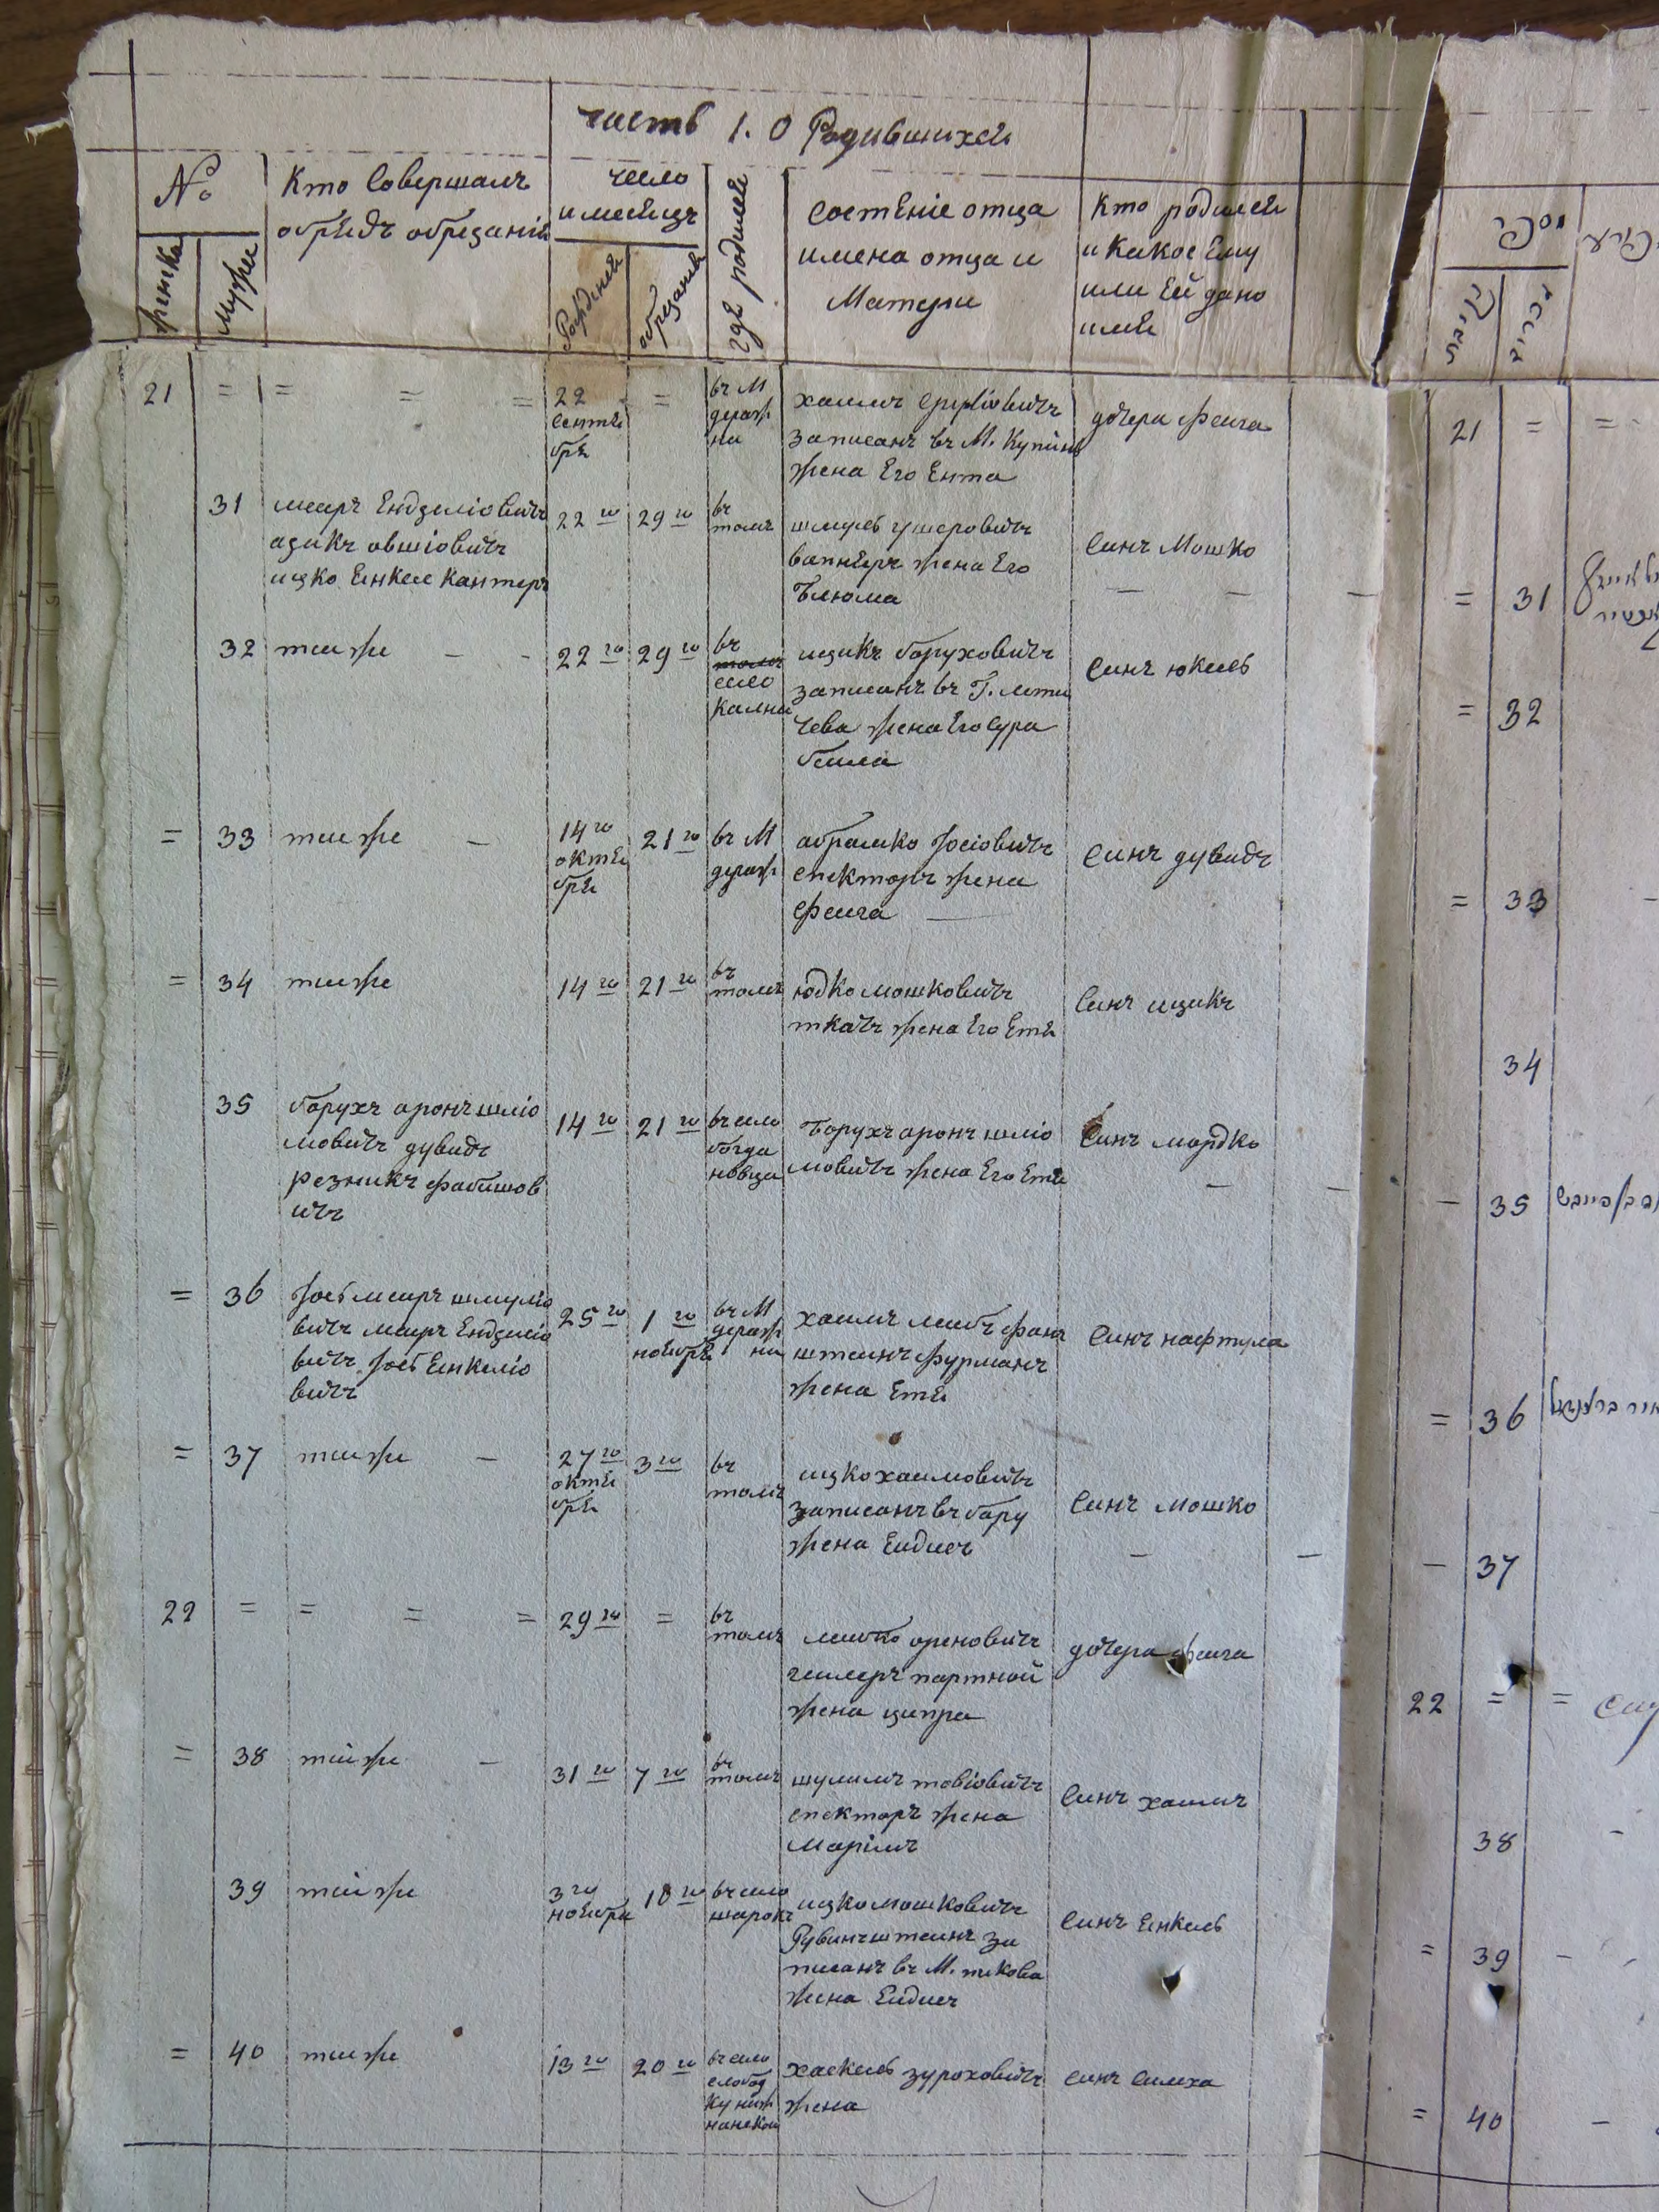 часть 1. О Родившихся
№
Кто Совершалъ
обрядъ обрезанія
число
и месяцъ
где родился
состеніе отца
имена отца и
Матери
Кто родился
и Какое Ему
или Ей дано
имя
женска
Мужеи
Рождения
обрезания
21 = = = = 22
сентя
бря
=
въ М
дераж
ни
хаимъ
записанъ въ М. Купинь
жена Его Ента
дочера феига
31
меиръ Ендзелiовичъ
азикъ овшiовичъ
ицко Енкел Кантеръ
22 го
29 го
въ
томъ
шмуль ушеровичъ
вапнеръ жена Его
блюма
Синъ Мошко
32
тиже - -
22 го
29 го
въ
село
Кална
ицикъ боруховичъ
записанъ въ Г. лети
чева жена Его сура
беила
Синъ юкель
= 33
тиже -
14 го
октя
бря
21 го
въ М
дераж
абрамко Iосiовичъ
спекторъ жена
феига
Синъ дувидъ
= 34
тиже
14 го
21 го
въ
томъ
юдко мошковичъ
ткачъ жена Его Етя
Синъ ицикъ
35
борухъ аронъ шлiо
мовичъ дувидъ
резникъ фабишов
ичъ
14 го
21 го
въ село
богда
новца
борухъ аронъ шлiо
мовичъ жена Его Етя
Синъ мордко
= 36
Iось меиръ шмулiо
вичъ меиръ Ендзелiо
вичъ Iось Енкелiо
вичъ
25 го
1 го
ноября
въ М
дераж
ни
хаимъ леибъ фаин
штеинъ фурманъ
жена Етя
Синъ нафтула
= 37
тиже -
27 го
октя
бря
3 го
въ
томъ
ицко хаимовичъ
записанъ въ бару
жена Еидесъ
Синъ Мошко
22 = = = = 29 го =
въ
томъ
леибко ореновичъ
гелеръ портной
жена ципра
дочера феига
= 38
тиже -
31 го
7 го
въ
томъ
шулимъ товiовичъ
спекторъ жена
Марiимъ
Синъ хаимъ
39
тиже
3 го
ноября
10 го
въ село
шарокъ
ицко мошковичъ
Рувинштеинъ за
писанъ въ М. пикова
жена Еидесъ
Синъ Енкель
= 40
тиже
13 го
20 го
въ село
слобод
хаскель зуроховичъ
жена
Синъ Симха
נקבות
זכרים
21 = =
= 31
= 32
= 33
34
- 35
= 36
- 37
22 = =
38
= 39 -
= 40 -